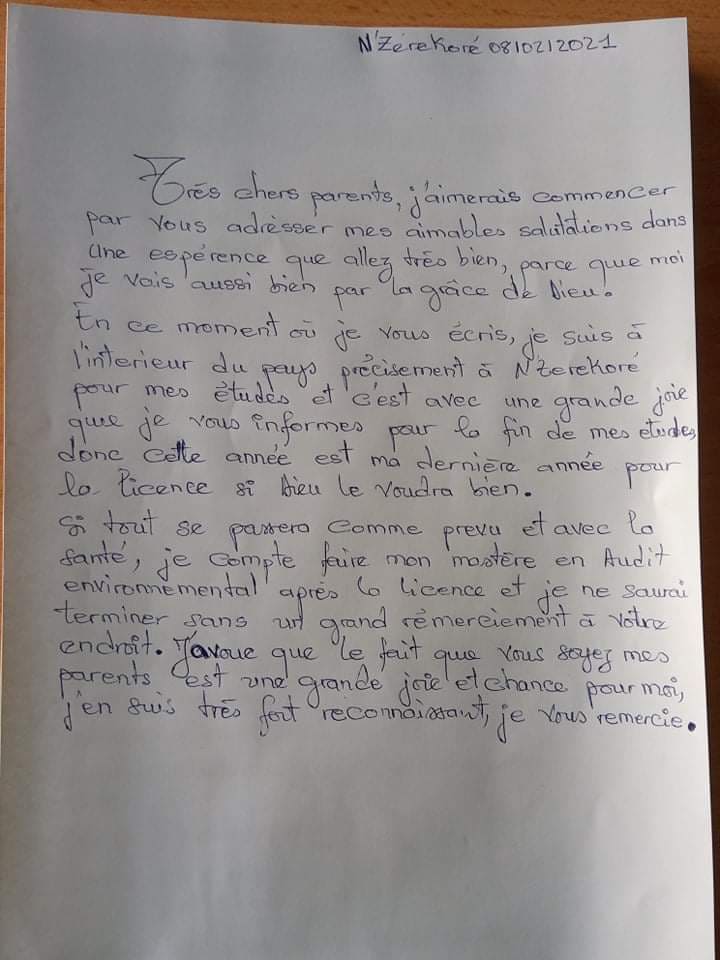 N'Zérékoré 08/02/2021
Très chers parents, j'aimerais commencer
par vous adrèsser mes aimables salutations dans
une espérence que allez très bien, parce que moi
je vais aussi bien par la grâce de Dieu.
En ce moment où je vous écris, je suis à
l'interieur du pays précisement à N'Zerekoré
pour mes études et c'est avec une grande joie
que je vous informes pour la fin de mes études,
donc cette année est ma dernière année pour
la licence si Dieu le voudra bien.
Si tout se passera comme prevu et avec la
santé, je compte faire mon mastère en Audit
environnemental après la licence et je ne saurai
terminer sans un grand rémerciement à votre
endroit. J'avoue que le fait que vous soyez mes
parents est une grande joie et chance pour moi,
j'en suis très fort reconnaissant, je vous remercie.